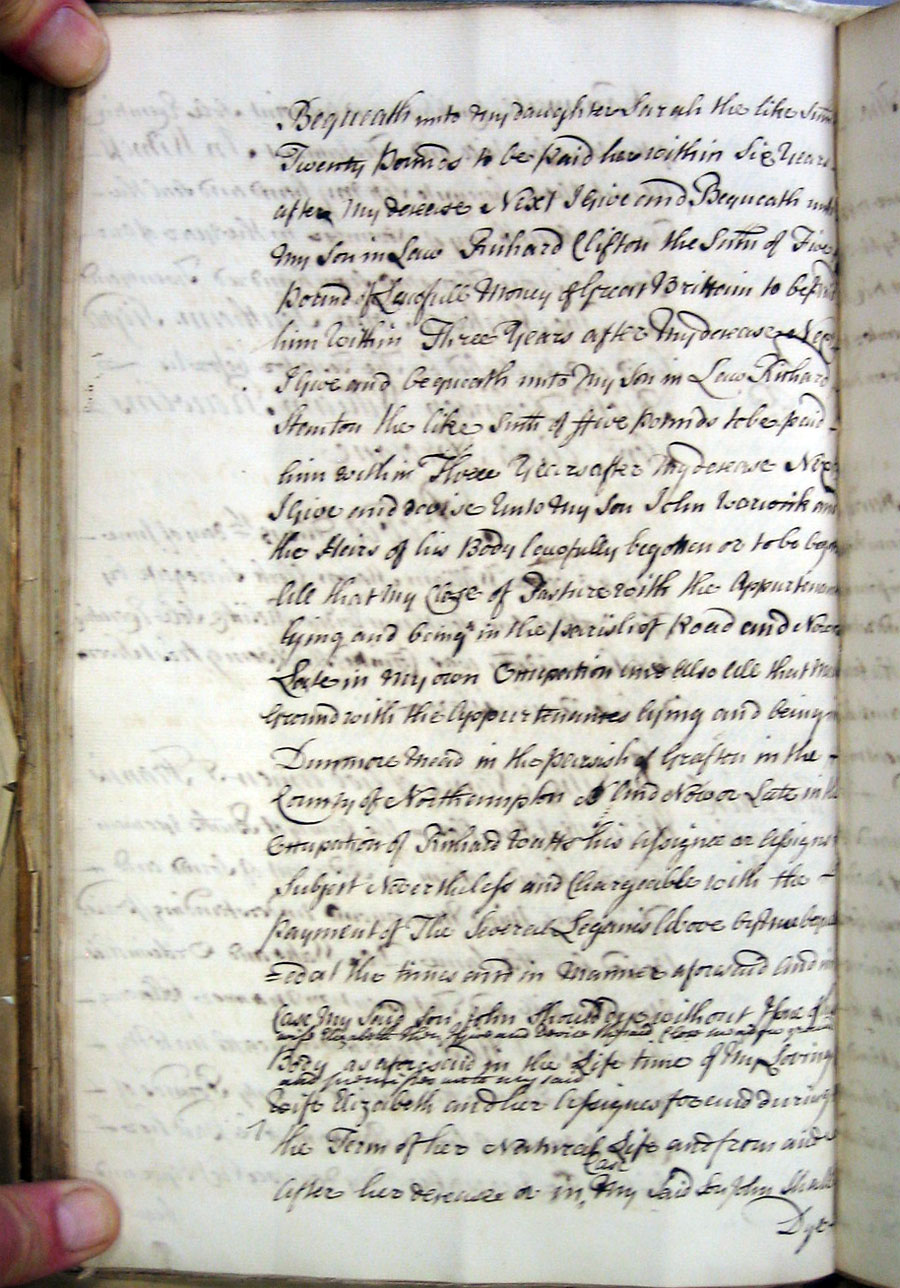 Bequeath unto my daughter Sarah the like Sum
Twenty Pounds to be paid her within Six Years
after my decease Next I Give and Bequeath unto
my Son in Law Richard Clifton the Sum of Five
Pound of Lawfull Money of Great Brittain to be paid
him within Three Years after my decease Next
I Give and bequeath unto my Son in Law Richard
Stenton the like Sum of ffive Pounds to be paid
him within Three Years after my decease Next
I Give and devise unto my Son John Warwick and
the Heirs of his Body lawfully begotten or to be
All that my Close of Pasture with the Appurtenan
lying and being in the parish of Road and Now or
Late in my own Occupation and Also All that
Ground with the Appurtenances lying and being
Dunmore mead in the parish of Grafton in the
County of Northampton And Now or Late in the
Occupation of Richard Watts his Assignee or Assignes
Subject Nevertheless and Chargeable with the
payment of The Several Legacies Above
=ed at the times and in manner aforesaid And in
Case my Said Son John Should dye without Issue of
wife Elizabeth then I give and devise the said Close
Body as aforesaid in the Life time of my Loving
and unto my said
Wife Elizabeth and her Assignes for and during
the Term of her Natural Life and from and
Case
After her decease or in my Said Son John Shall
Dye